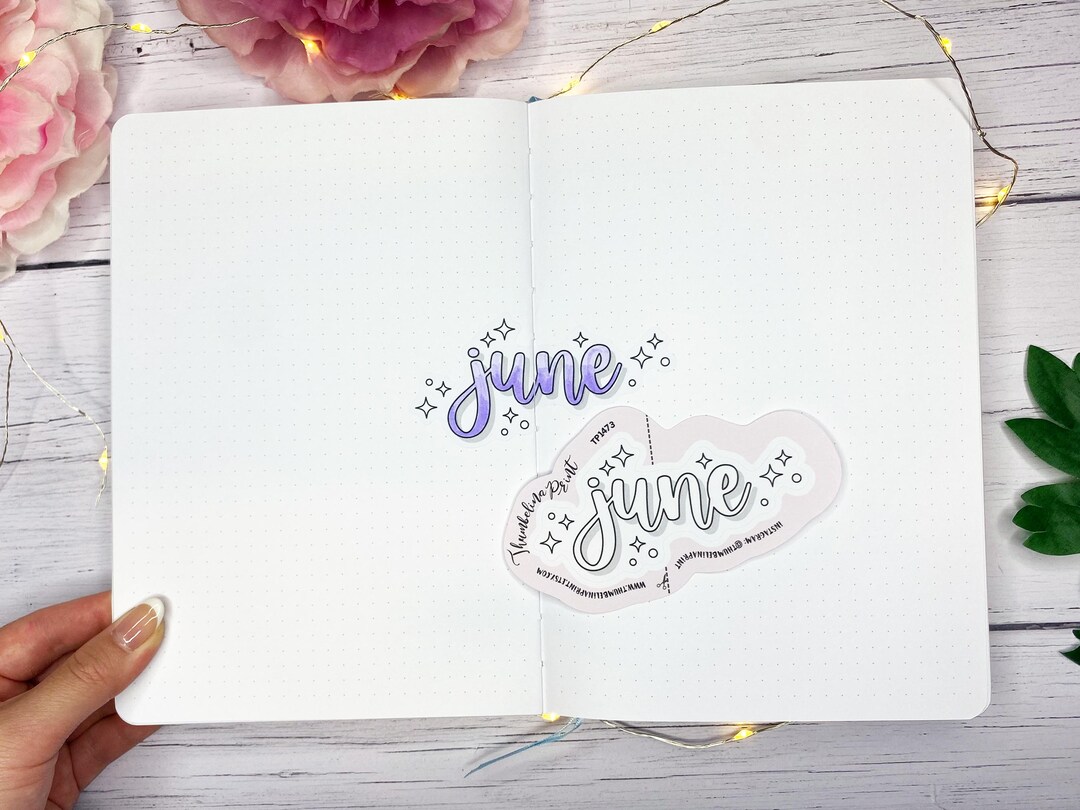 june
TP1473
Thumbelina Print
june
INSTAGRAM: @THUMBELINAPRINT
WWW.THUMBELINAPRINT.ETSY.COM